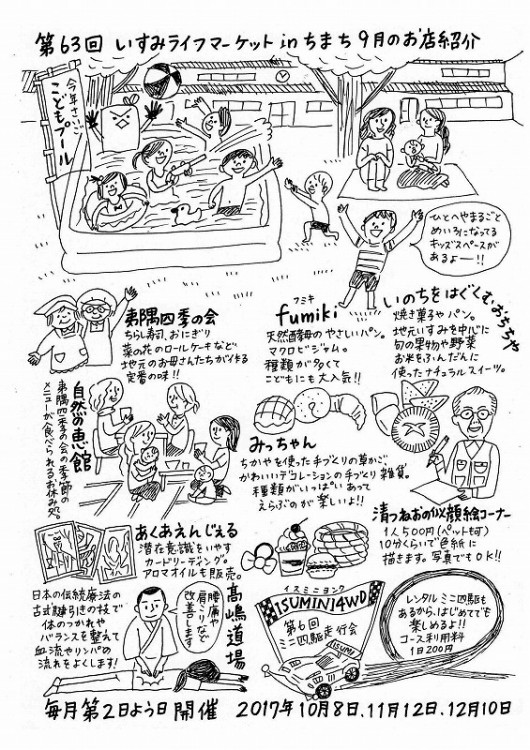 第63回 いすみライフマーケット in ちまち 9月のお店紹介
今年さいご
こどもプール
ひとへやまるごと
めいろになってる
キッズスペースが
あるよー!!
夷隅四季の会
ちらし寿司、おにぎり
菜の花のロールケーキなど
地元のお母さんたちが作る
定番の味!!
フミキ
fumiki
天然酵母のやさしいパン。
マクロビジャム。
種類が多くて
こどもにも大人気!!
いのちをはぐくむ、おちちや
焼き菓子やパン。
地元いすみを中心に
旬の果物や野菜
お米をふんだんに
使ったナチュラルスイーツ。
自然の恵館
夷隅四季の会の季節の
メニューが食べられるお休み処。
みっちゃん
ちがやを使った手づくりの草かご。
かわいいデコレーションの手づくり雑貨。
種類がいっぱいあって
えらぶのが楽しいよ!!
清つねおの似顔絵コーナー
1人500円(ペット可)
10分くらいで色紙に
描きます。写真でもOK!!
あくあえんじぇる
潜在意識をいやす
カードリーディング。
アロマオイルも販売。
髙嶋道場
日本の伝統療法の
古式腱引きの技で
体のつかれや
バランスを整えて
血流やリンパの
流れをよくします!
腰痛や
肩こりなど
改善します
イスミニヨンク
ISUMINI4WD
第6回
ミニ四駆走行会
ISUMI
レンタルミニ四駆も
あるから、はじめてでも
楽しめるよ!!
コース利用料
1日200円
毎月第2日よう日開催 2017年10月8日、11月12日、12月10日